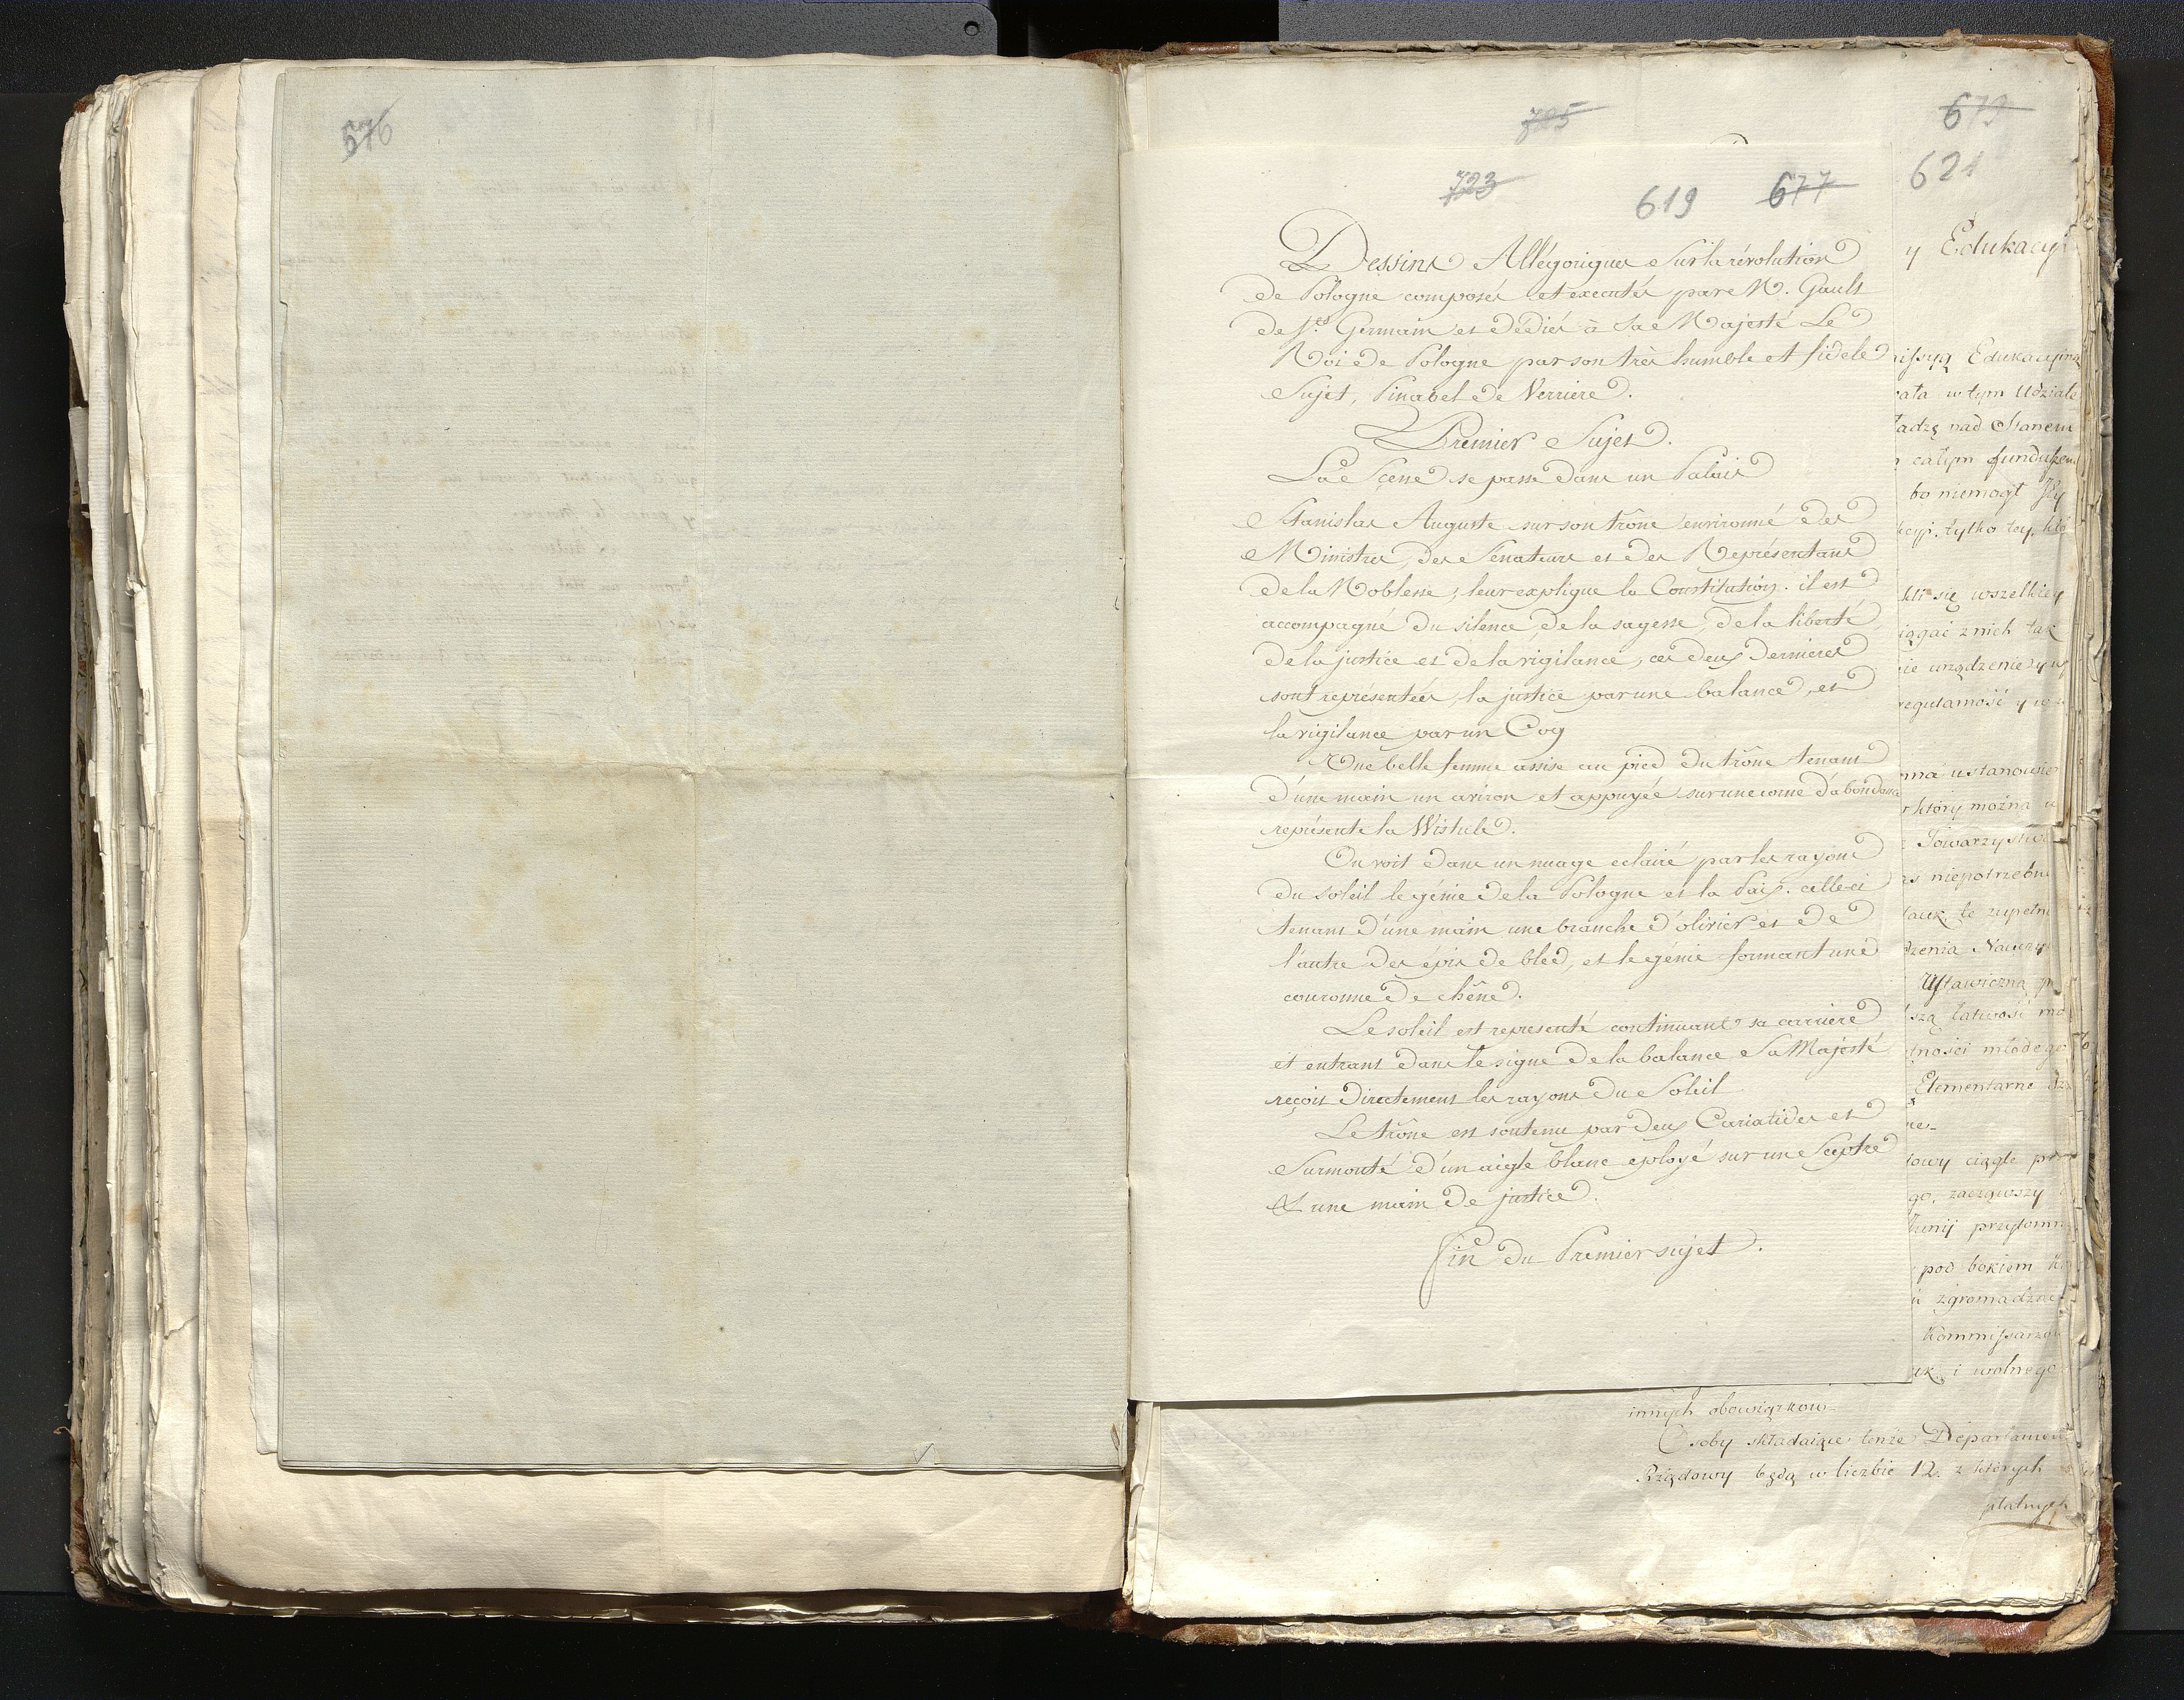 676
725
679
621
723
619
677
Dessins Allégoriques Sur la révolution
de Pologne composés et executés par M. Gault
de St. Germain et dédiés à Sa Majesté Le
Roi de Pologne par son très humble et fidele
Sujet, Pinabel de Verriere.
Premier Sujet.
La Scene se passe dans un Palais
Stanislas Auguste sur son trône environné des
Ministres, des Senateurs et des Représentans
de la Noblesse, leur explique la Constitution. il est
accompagné du silence, de la sagesse, de la liberté,
de la justice et de la vigilance, ces deux dernieres
sont représentées, la justice par une balance, et
la vigilance par un Coq
Une belle femme assise au pied du trône tenant
d'une main un aviron et appuyée sur une corne d'abondance
représente la Wistule.
On voit dans un nuage eclairé par les rayons
du soleil le génie de la Pologne et la Paix. celle-ci
tenant d'une main une branche d'olivier et de
l'autre des épis de bled, et le génie formant une
couronne de chêne.
Le soleil est representé continuant sa carriere
et entrant dans le signe de la balance Sa Majesté
reçoit directement les rayons du Soleil
Le trône est soutenu par deux Cariatides et
Surmonté d'un aigle blanc eployé sur une Sceptre
& une main de justice.
Fin du Premier sujet.
y Edukacyi
Edukacyina
w tym Udziale
nad Stanem
całym funduszem
bo niemogł
tylko tey
się wszelkiey
z nich tak
urządzenie
regularność y
ustanowie
który można
Towarzystwo
niepotrzebn
te zupełn
Ustawiczną
łatwość
młodego
Elementarne
ciągle
zacząwszy
przytomn
pod bokiem
zgromadze
Kommissarzow
i wolnego
innych obowiązkow
Osoby składaiące tenże Departament
Rządowy będą w liczbie 12. z których
płatnych